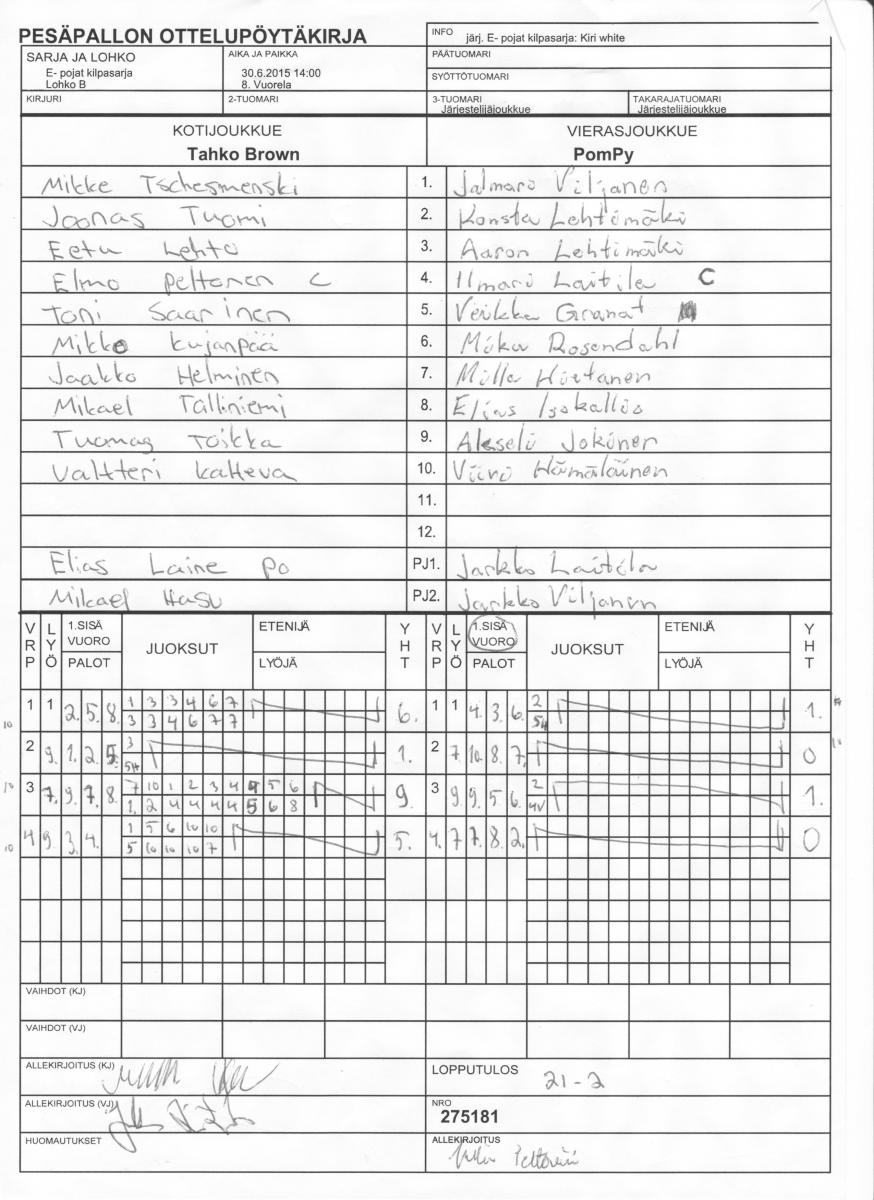 PESÄPALLON OTTELUPÖYTÄKIRJA
INFO järj. E- pojat kilpasarja: Kiri white
SARJA JA LOHKO
E- pojat kilpasarja
Lohko B
AIKA JA PAIKKA
30.6.2015 14:00
8. Vuorela
PÄÄTUOMARI
SYÖTTÖTUOMARI
KIRJURI
2-TUOMARI
3-TUOMARI
Järjestelijäjoukkue
TAKARAJATUOMARI
Järjestelijäjoukkue
KOTIJOUKKUE
Tahko Brown
VIERASJOUKKUE
PomPy
Mikke Tschesmenski 1. Jalmari Viljanen
Joonas Tuomi 2. Konsta Lehtimäki
Eetu Lehto 3. Aaron Lehtimäki
Elmo Peltonen C 4. Ilmari Laitila C
Toni Saarinen 5. Veikka Granat
Mikko Kujanpää 6. Mika Rosendahl
Jaakko Helminen 7. Milla Hietanen
Mikael Talliniemi 8. Elias Isokallio
Tuomas Toikka 9. Akseli Jokinen
Valtteri Kalteva 10. Viivi Hämäläinen
11.
12.
Elias Laine PO PJ1. Jarkko Laitila
Mikael Hasu PJ2. Jarkko Viljanen
VRP LYÖ 1.SISÄ VUORO PALOT JUOKSUT ETENIJÄ LYÖJÄ YHT VRP LYÖ 1.SISÄ VUORO PALOT JUOKSUT ETENIJÄ LYÖJÄ YHT
1 1 2. 5. 8. 1 3 3 4 6 7 6. 1 1 4. 3. 6. 2 1.
3 3 4 6 7 7 5H
2 9. 1. 2. 5. 3 1. 2 7. 10. 8. 7. 0
5H
3 7. 9. 7. 8. 7 10 1 2 3 4 4 5 6 9 3 9. 9. 5. 6. 2 1.
1 2 4 4 4 4 5 6 8 4V
4 9. 3. 4. 1 5 6 10 10 5. 4. 7 7. 8. 2. 0
5 6 10 10 7
VAIHDOT (KJ)
VAIHDOT (VJ)
ALLEKIRJOITUS (KJ)
LOPPUTULOS 21-2
ALLEKIRJOITUS (VJ)
NRO
275181
HUOMAUTUKSET
ALLEKIRJOITUS